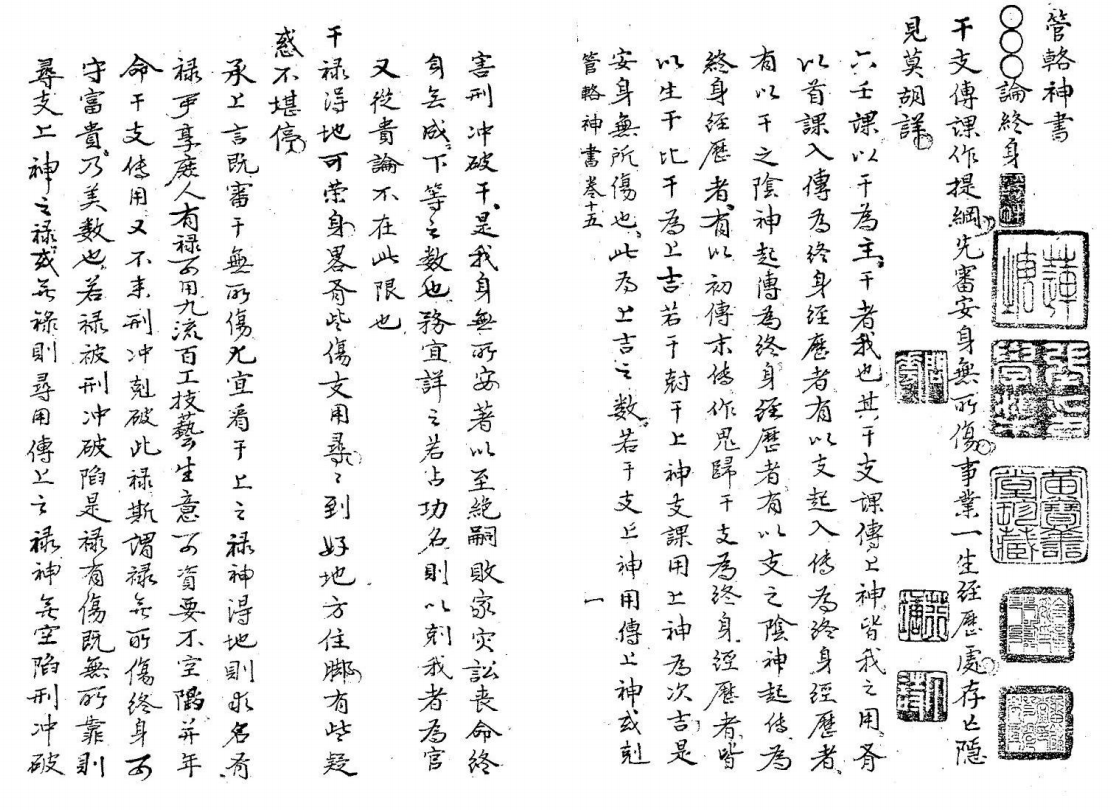 管輅神書
〇〇〇〇論終身
干支傳課作提綱先審安身無所傷事業一生經歷處存亡隱
見莫胡詳
六壬課以干為主干者我也其干支課傳上神皆我之用有
以首課入傳為終身經歷者有以支起入傳為終身經歷者
有以干之陰神起傳為終身經歷者有以支之陰神起傳為
終身經歷者有以初傳末傳作鬼歸干支為終身經歷者皆
以生干比干為上吉若干尅干上神支課用上神為次吉是
安身無所傷也此為上吉之数若干支上神用傳上神或尅
管輅神書卷十五 一
害刑冲破干是我身無所安著以至絕嗣敗家灾訟丧命終
身無成下等之數也務宜詳之若占功名則以剋我者為官
又從貴論不在此限也
干禄得地可荣身畧有些傷支用尋尋到好地方住脚有些疑
惑不堪停
承上言既審干無所傷尤宜看干上之禄神得地則求名有
禄可享庶人有禄可用九流百工技藝生意可資要不空陷并年
命干支傳用又不来刑冲尅破此禄斯謂禄無所傷終身可
守富貴乃美數也若禄被刑冲破陷是禄有傷既無所靠則
尋支上神之禄或無禄則尋用傳上之禄神無空陷刑冲破